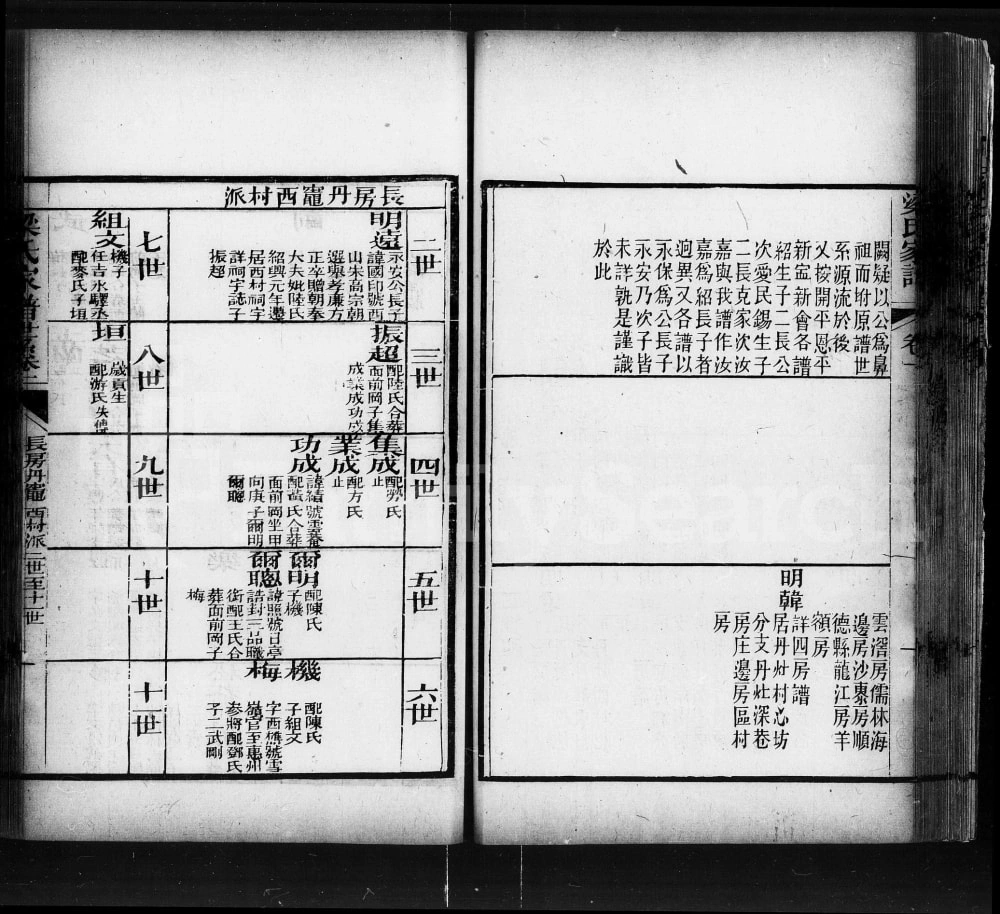 梁氏家譜
卷一
闕疑以公為鼻
祖而附原譜世
系源流於後
又按開平恩平
新寧新會各譜
紹生子二長公
次愛民錫生子
二長克家次汝
嘉與我譜作汝
嘉為紹長子者
迥異又各譜以
永保為公長子
永安乃次子皆
未詳孰是謹識
於此
明韓
雲滘房儒林海
邊房沙裏房順
德縣龍江房羊
額房
詳四房譜
居丹灶村心坊
分支丹灶深巷
房庄邊房區村
房
長房丹竈西村派
二世
明遠
永安公長子
諱國印號酉
山宋高宗朝
選舉孝廉方
正卒贈朝奉
大夫妣陸氏
紹興元年遷
居西村祠字
詳祠宇誌子
振超
三世
振超
配陸氏合葬
面前岡子集
成業成功成
四世
集成
配勞氏
止
業成
配方氏
止
功成
諱績號雲菴
配黃氏合葬
面前岡坐甲
向庚子爾明
爾聰
五世
爾明
配陳氏
子機
爾聰
諱照號日亭
誥封三品職
銜配王氏合
葬面前岡子
梅
六世
機
配陳氏
子組文
梅
字酉橋號雪
嶺官至惠州
參將配鄧氏
子二武剛
七世
組文
機子
任吉永驛丞
配麥氏子垣
八世
垣
歲貢生
配游氏失傳
九世
十世
十一世
梁氏家譜世系
長房丹竈西村派二世至十一世